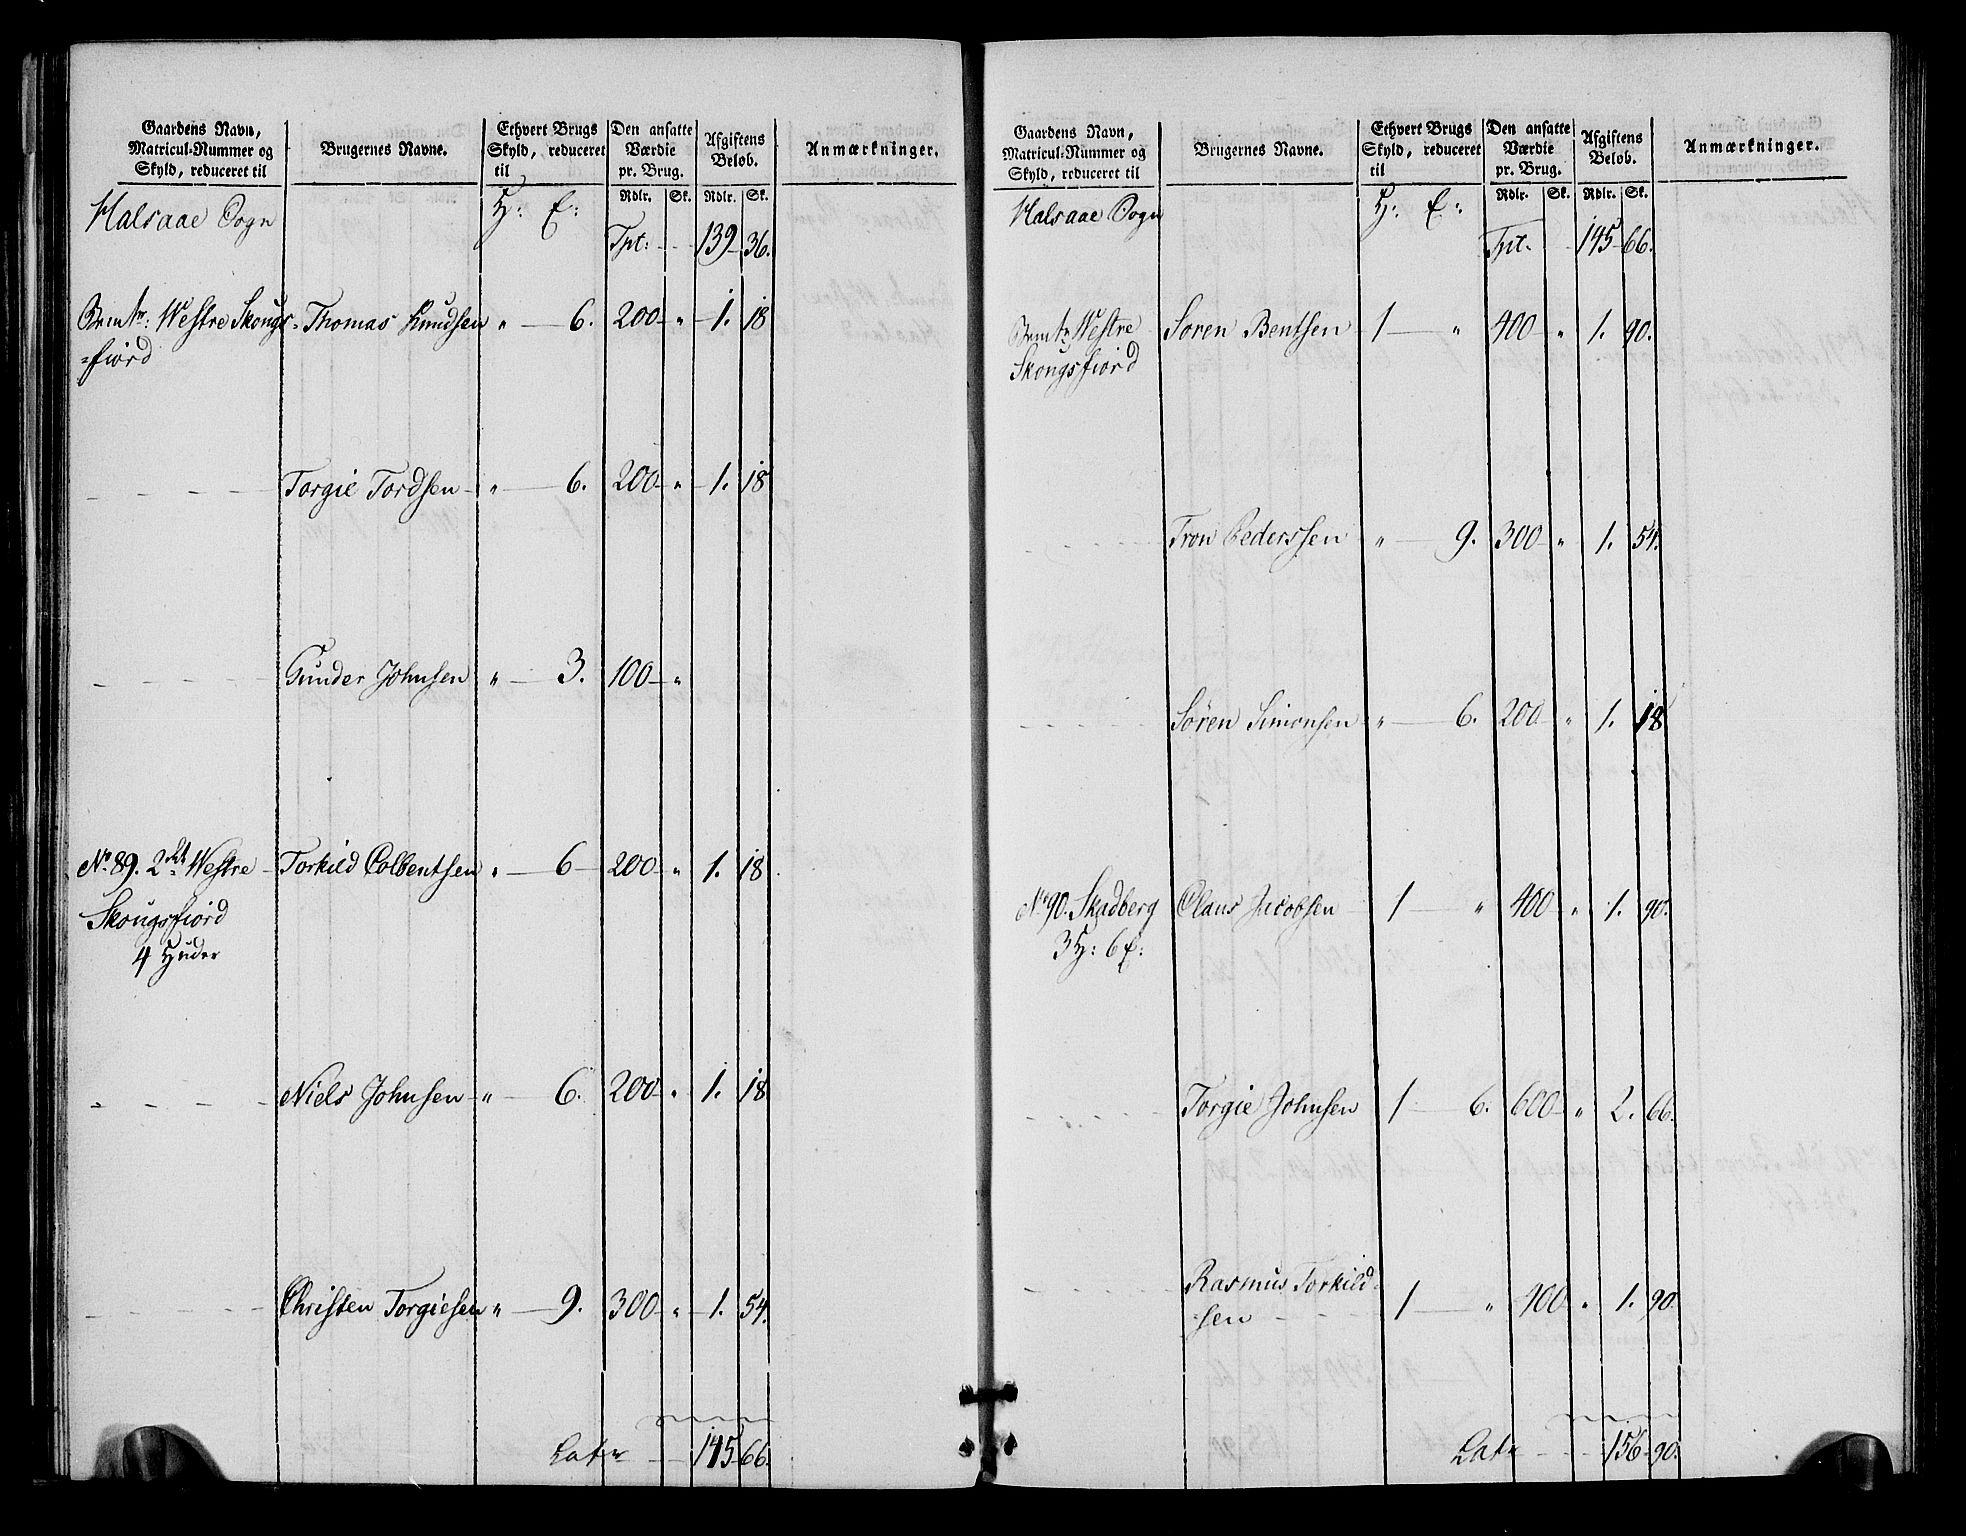 Gaardens Navn, Matricul-Nummer og Skyld, reduceret til | Brugernes Navne. | Ethvert Brugs Skyld, reduceret til | Den ansatte Værdie pr. Brug. | Afgiftens Beløb. | Anmærkninger.
Rdlr. Sk. Rdlr. Sk.
Halsaae Sogn H: E: Tpt: 139 36.
Westre Skougs- Thomas Knudsen " 6. 200 " 1. 18
=fiord
Torgie Tordsen " 6. 200 " 1. 18
Gunder Johnsen " 3. 100 "
No. 89. 2det Westre Torkild Colbentsen " 6 200 " 1. 18
Skougsfiord
4 Huder
Niels Johnsen " 6. 200 " 1. 18
Christen Torgiesen " 9. 300 " 1. 54.
Lat. 145 66.
Gaardens Navn, Matricul-Nummer og Skyld, reduceret til | Brugernes Navne. | Ethvert Brugs Skyld, reduceret til | Den ansatte Værdie pr. Brug. | Afgiftens Beløb. | Anmærkninger.
Rdlr. Sk. Rdlr. Sk.
Halsaae Sogn H: E: Tpt. 145 66.
Westre Søren Bentsen 1 " 400 " 1. 90.
Skougsfiord
Tron Pederssen " 9. 300 " 1. 54.
Søren Simonsen " 6. 200 " 1. 18
No. 90. Skadberg Claus Jacobsen 1 " 400 " 1. 90.
3 H: 6 E:
Torgie Johnsen 1 6. 600 " 2. 66.
Rasmus Torkild=
=sen 1 " 400 " 1. 90.
Lat. 156 90.